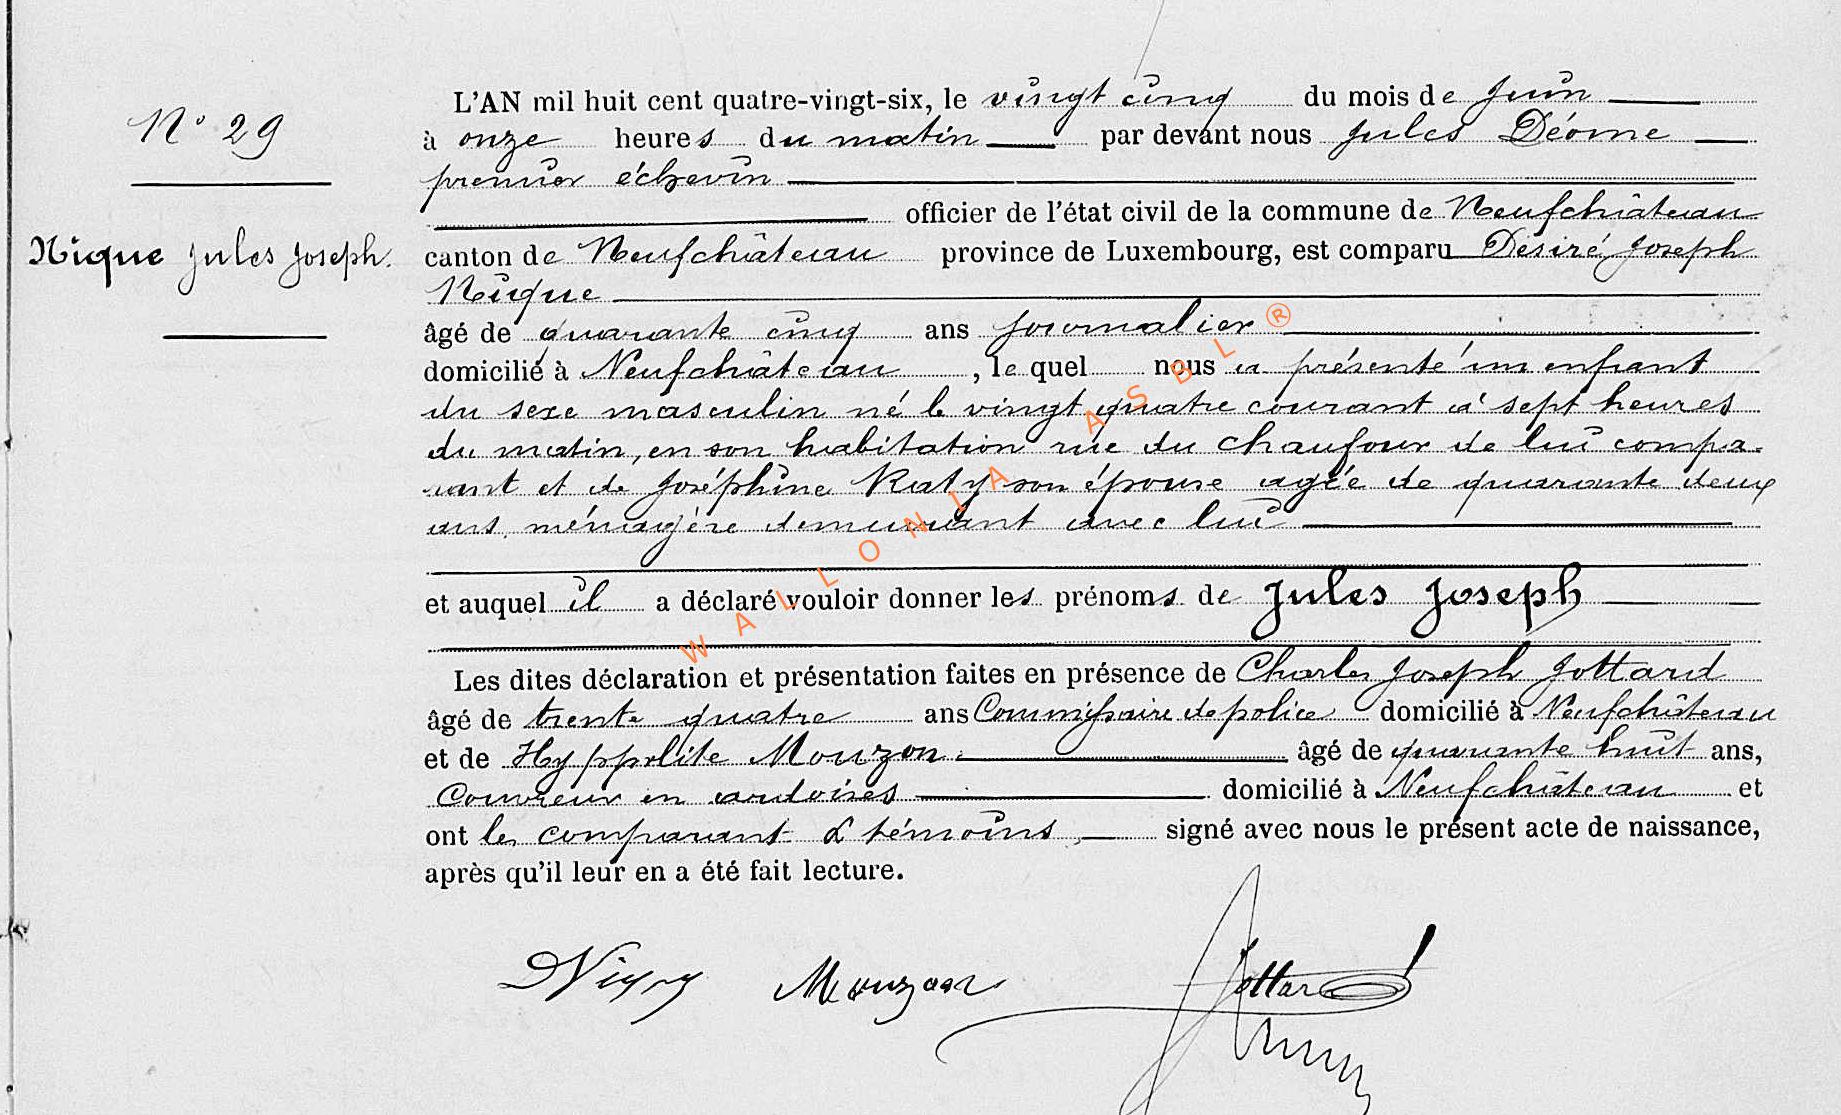 N° 29
Nique Jules Joseph.
L'AN mil huit cent quatre-vingt-six, le vingt cinq du mois de juin
à onze heures du matin par devant nous Jules Déome
premier échevin
officier de l'état civil de la commune de Neufchâteau
canton de Neufchâteau province de Luxembourg, est comparu Désiré Joseph
Nique
âgé de quarante cinq ans journalier
domicilié à Neufchâteau, le quel nous a présenté un enfant
du sexe masculin né le vingt quatre courant à sept heures
du matin, en son habitation rue du chaufour de lui compa-
rant et de Joséphine Katy son épouse agée de quarante deux
ans, ménagère demeurant avec lui
et auquel il a déclaré vouloir donner les prénoms de Jules Joseph
Les dites déclaration et présentation faites en présence de Charles Joseph Jottard
âgé de trente quatre ans Commissaire de police domicilié à Neufchâteau
et de Hyppolite Mouzon âgé de quarante huit ans,
Couvreur en ardoises domicilié à Neufchâteau et
ont les comparant & témoins, signé avec nous le présent acte de naissance,
après qu'il leur en a été fait lecture.
Mouzon Jottard
WALLONIA ASBL ®